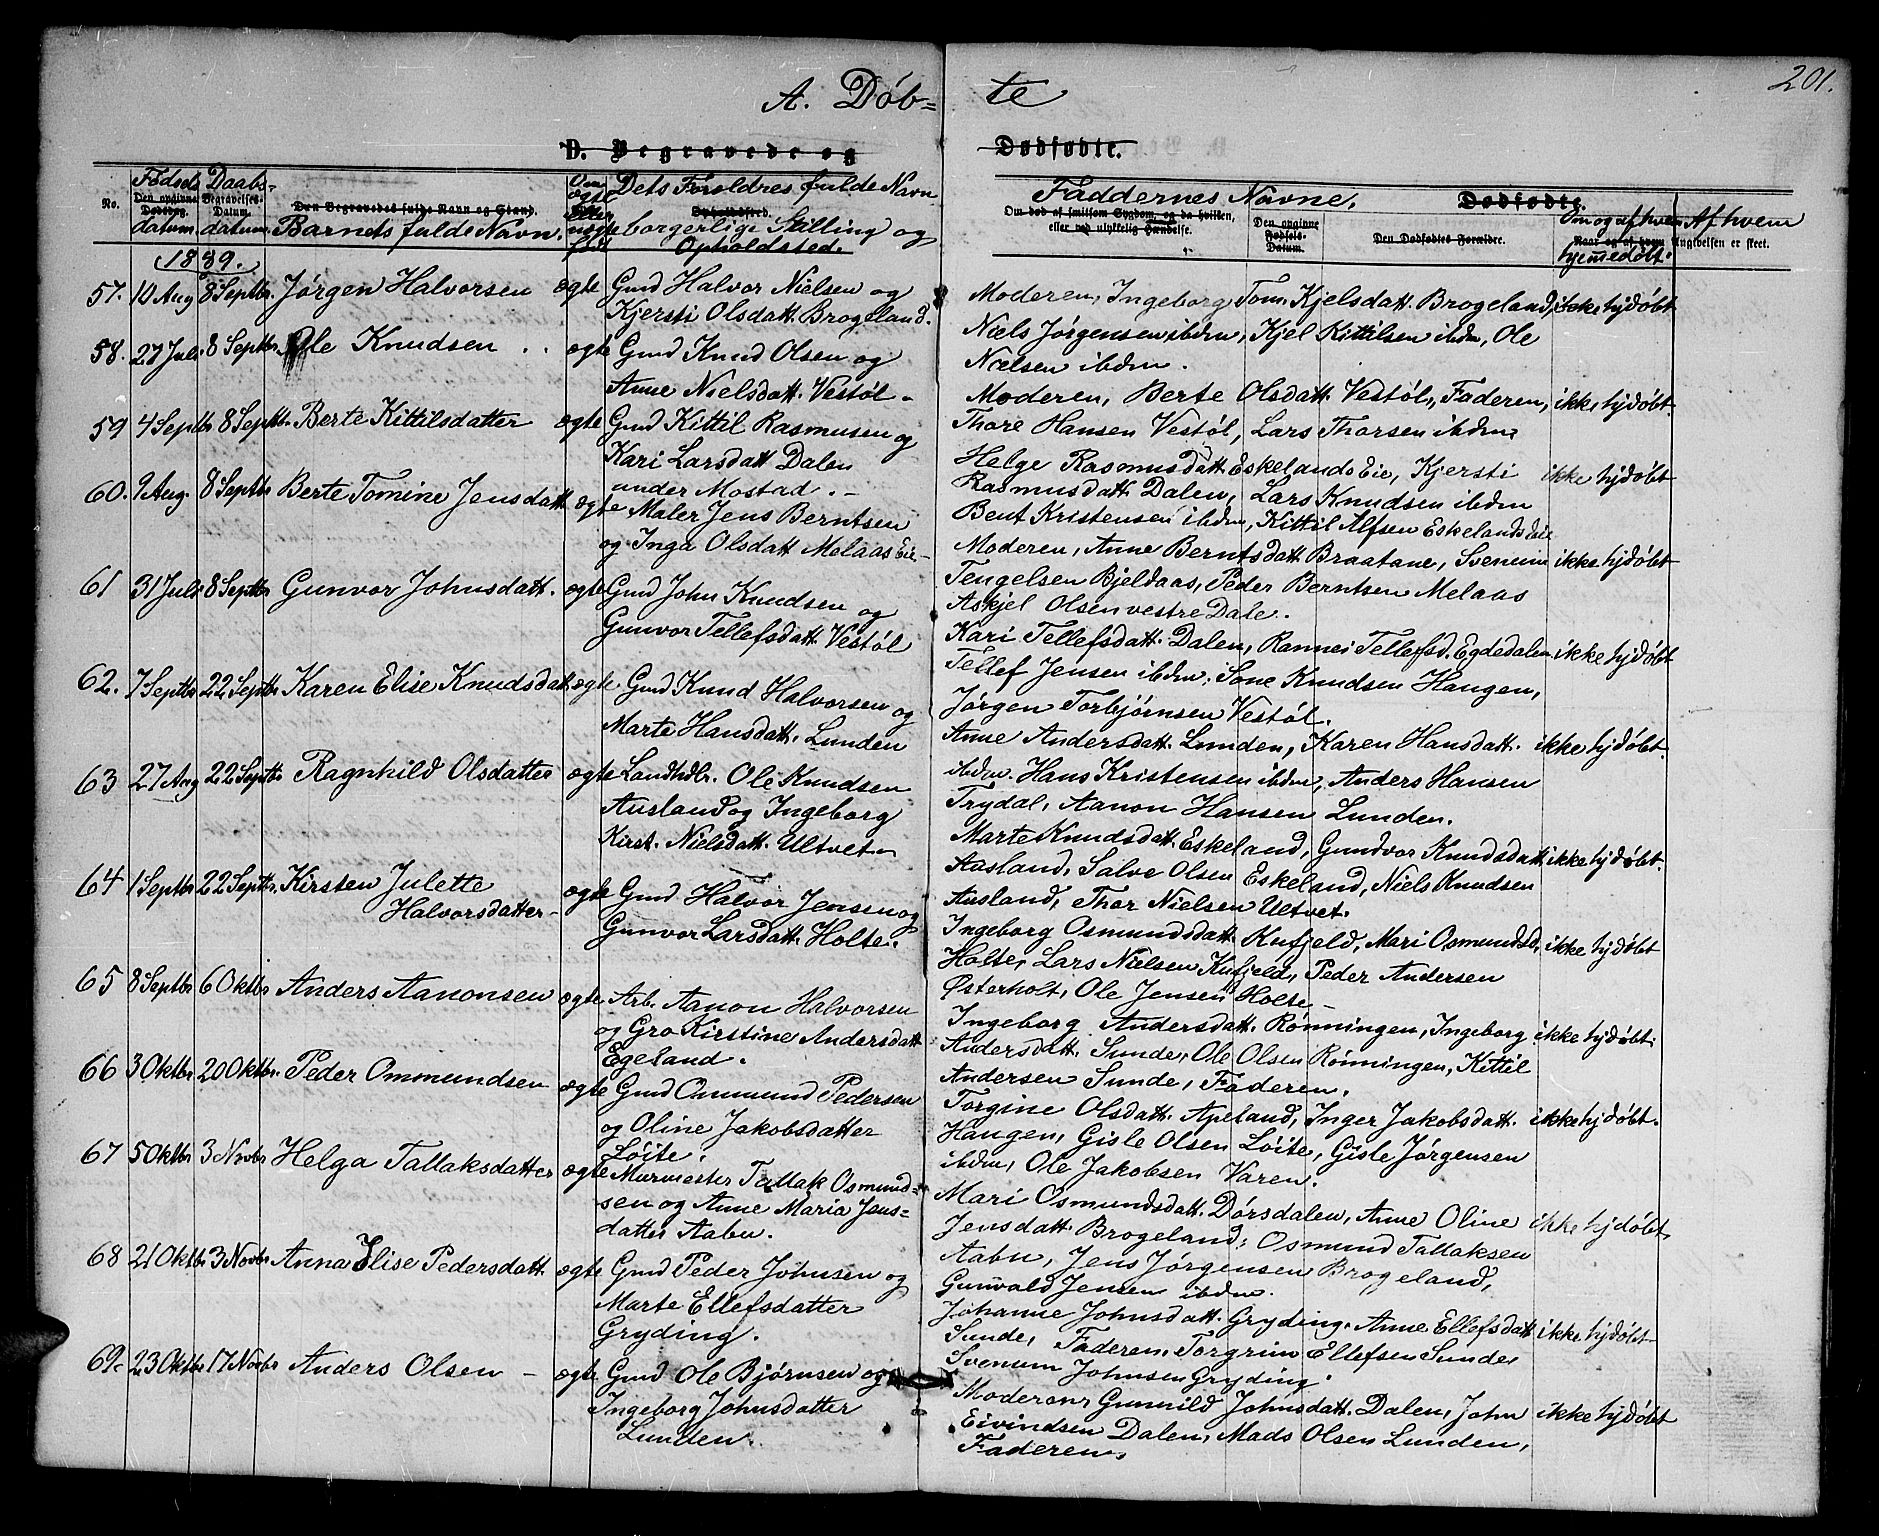 201.
A. Döb= te
D. Begravede og Dødfødte.
No.
Fødsels Daabs-
Den opgivne Dødsdag. Begravelses-Datum.
datum. datum.
Den Begravedes fulde Navn og Stand.
Barnets fulde Navn.
Om ægte eller uægte fød
Dets Foroldres fulde Navn
Opholdssted.
borgerlige Stilling og
Opholdssted.
Faddernes Navne.
Om død af smitsom Sygdom, og da hvilken,
eller ved ulykkelig Hændelse.
Dødfødte.
Den opgivne Fødsels-Datum.
Den Dødfødtes Forældre.
Om og af hvem
Naar og af hvem
hjemedøbt.
Af hvem
Angivelsen er skeet.
1889.
57. 10 Aug 8 Septbr. Jørgen Halvorsen ægte Gmd Halvor Nielsen og
Kjersti Olsdatt. Brogeland.
Moderen, Ingeborg Tom. Kjelsdatt. Brogeland, ikke hjdøbt
Niels Jørgensen ibdm, Kjel Kittilsen ibdm, Ole
Nielsen ibdm.
58. 27 Juli 8 Septbr. Ole Knudsen . . ægte Gmd Knud Olsen og
Anne Nielsdatt. Vestøl -
Moderen, Berte Olsdatt. Vestøl, Faderen, ikke hjdøbt.
Thore Hansen Vestøl, Lars Thorsen ibdm
59 4 Septbr 8 Septbr. Berte Kittilsdatter ægte Gmd Kittil Rasmusen og
Kari Larsdatt Dalen
under Mostad. -
Helge Rasmusdatt Eskelands Eie, Kjersti ikke hjdøbt
Rasmusdatt. Dalen, Lars Knudsen ibdm
Bent Kristensen ibdm, Kittil Alfsen Eskelandsdeie
60. 9 Aug. 8 Septbr Berte Tomine Jensdatt ægte Maler Jens Berntsen
og Inga Olsdatt Melaas Eie -
Moderen, Anne Berntsdatt Braatane, Svenum ikke hjdøbt
Tengelsen Bjeldaas, Peder Berntsen Melaas
Askjel Olsen vestre Dale.
61 31 Juli 8 Septbr Gunvor Johnsdatt. ægte Gmd John Knudsen og
Gunvor Tellefsdatt Vestøl
Kari Tellefsdatt. Dalen, Rannei Tellefsd. Egdedalen ikke hjdøbt
Tellef Jensen ibdm, Sone Knudsen Haugen,
Jørgen Torbjørnsen Vestøl.
62. 7 Septbr 22 Septbr Karen Elise Knudsdatt ægte. Gmd Knud Halvorsen og
Marte Hansdatt. Lunden
Anne Andersdatt. Lunden, Karen Hansdatt. ikke hjdøbt.
ibdm. Hans Kristensen ibdm, Anders Hansen
Trydal, Aanon Hansen Lunden.
63 27 Aug 22 Septbr Ragnhild Olsdatter ægte Landhdlr. Ole Knudsen
Ausland og Ingeborg
Kirst. Nielsdatt. Ultvet -
Marte Knudsdatt. Eskeland, Gundvor Knudsdatt ikke hjdøbt.
Aasland, Salve Olsen Eskeland, Niels Knudsen
Ausland, Thor Nielsen Ultvet.
64 1 Septbr 22 Septbr. Kirsten Julette
Halvorsdatter - ægte Gmd Halvor Jensen og
Gunvor Larsdatt. Holte.
Ingeborg Osmundsdatt. Kufjeld, Mari Osmundsd, ikke hjdøbt
Holte, Lars Nielsen Kufjeld, Peder Andersen
Østerholt, Ole Jensen Holte -
65 8 Septbr 6 Oktbr Anders Aanonsen ægte Arb. Aanon Halvorsen
og Gro Kirstine Andersdatt
Egeland.
Ingeborg Andersdatt. Rønningen, Ingeborg ikke hjdøbt.
Andersdatt. Sunde, Ole Olsen Rønningen, Kittil
Andersen Sunde, Faderen.
66 3 Oktbr 20 Oktbr. Peder Ommundsen ægte Gmd Ommund Pedersen
og Oline Jakobsdatter
Løite.
Torgine Olsdatt. Apeland, Inger Jakobsdatt. ikke hjdøbt.
Haugen, Gisle Olsen Løite, Gisle Jørgensen
ibdm, Ole Jakobsen Varen.
67 5 Oktbr 3 Novbr Helga Tallaksdatter ægte Murmester Tallak Osmund-
sen og Anne Maria Jens=
datter Aabu.
Mari Osmundsdatt. Dørsdalen, Anne Oline ikke hjdøbt.
Jensdatt. Brogeland, Osmund Tallaksen
Aabu, Jens Jørgensen Brogeland,
Gunvald Jensen ibdm.
68 21 Oktbr 3 Novbr Anna Elise Pedersdatt ægte Gmd Peder Johnsen og
Marte Ellefsdatter
Gryding.
Johanne Johnsdatt. Gryding, Anne Ellefsdatt ikke hjdøbt
Sunde, Faderen, Torgrim Ellefsen Sunde
Svenum Johnsen Gryding.
69. 23 Oktbr 17 Novbr Anders Olsen - ægte Gmd Ole Bjørnsen og
Ingeborg Johnsdatter
Lunden.
Moderen, Gunnild Johnsdatt. Dalen, John ikke hjdøbt
Eivindsen Dalen, Mads Olsen Lunden,
Faderen.